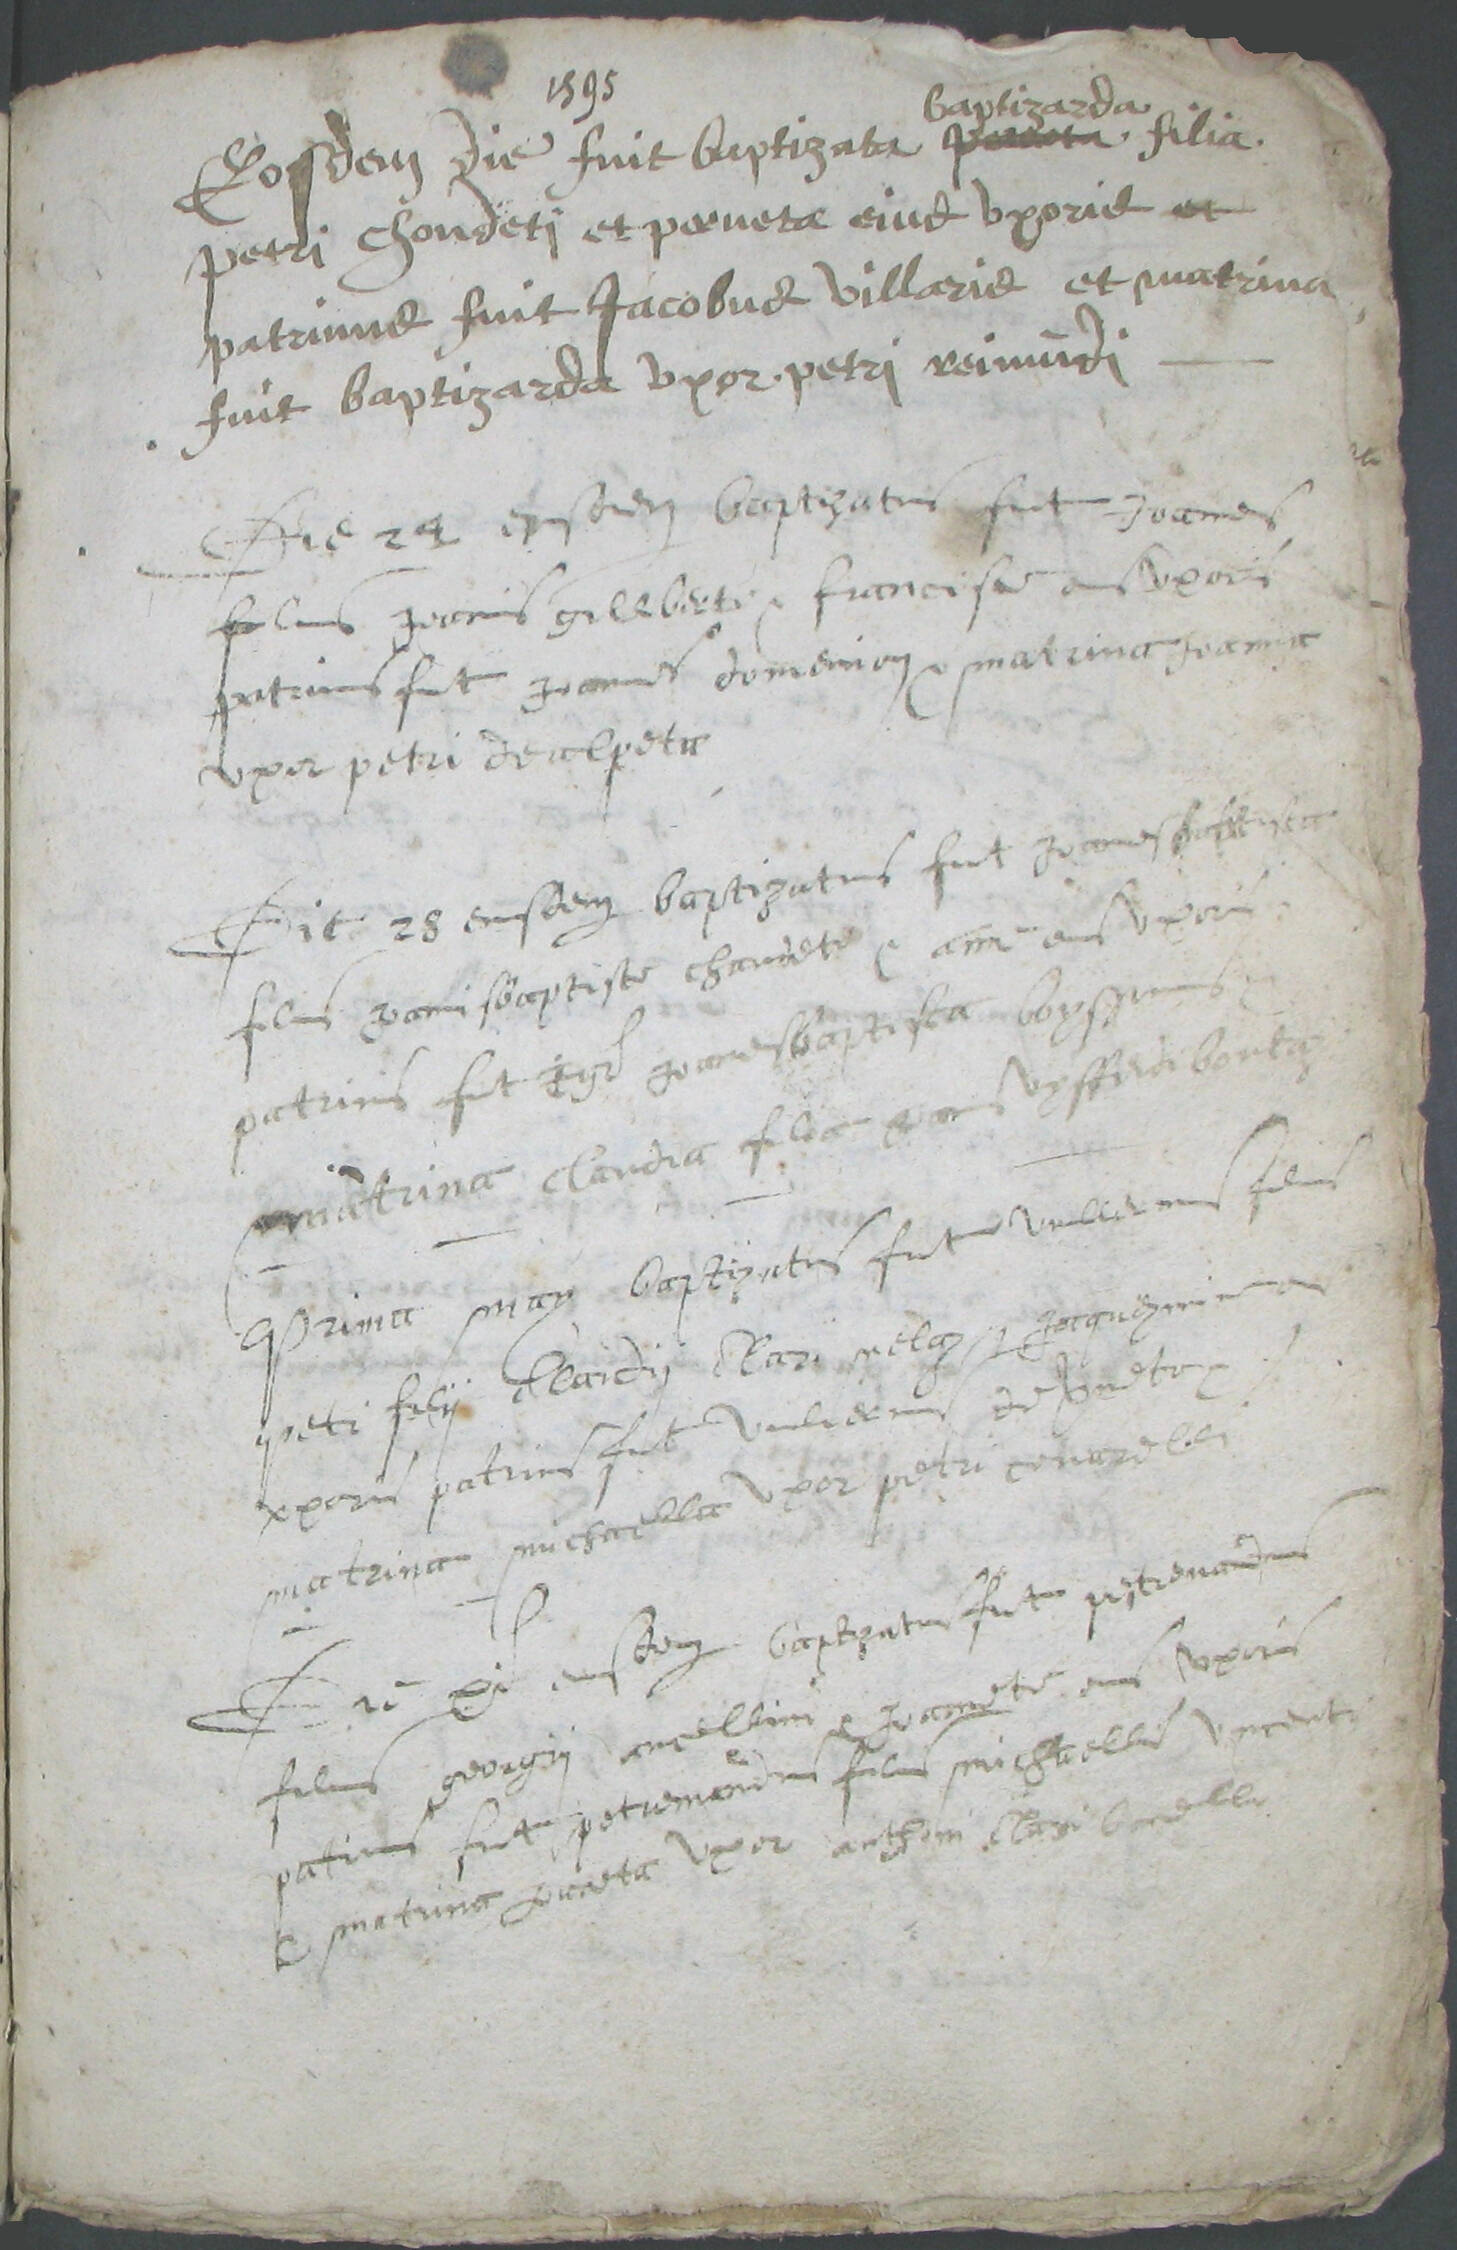 1595
baptizarda
Eogdem die fuit baptizata filia
petri chondeti et perneta eius uxoris et
patrinus fuit Jacobus Villaris et matrina
fuit baptizarda uxor petri reimudi
Die 24 eiusdem baptizatus fuit Joannes
filius Joanis gilleberti francisce eius uxoris
patrinus fuit Joannes matrina Joanna
uxor petri de alpeta
Die 28 eiusdem baptizatus fuit Joannesbaptista
filius Joannisbaptiste chandete eius uxoris
patrinus fuit Joannesbaptista
matrina claudia filia
Prima may baptizatus fuit Vuliermus filius
petri filij claudij clari
uxoris patrinus fuit Vuliermus
matrina michaella uxor petri
Die xj eiusdem baptizatus fuit petremandus
filius georgij ancellini Joannete eius uxoris
patrinus fuit petremandus filius michaellis Vincenti
matrina uxor anthoni clari